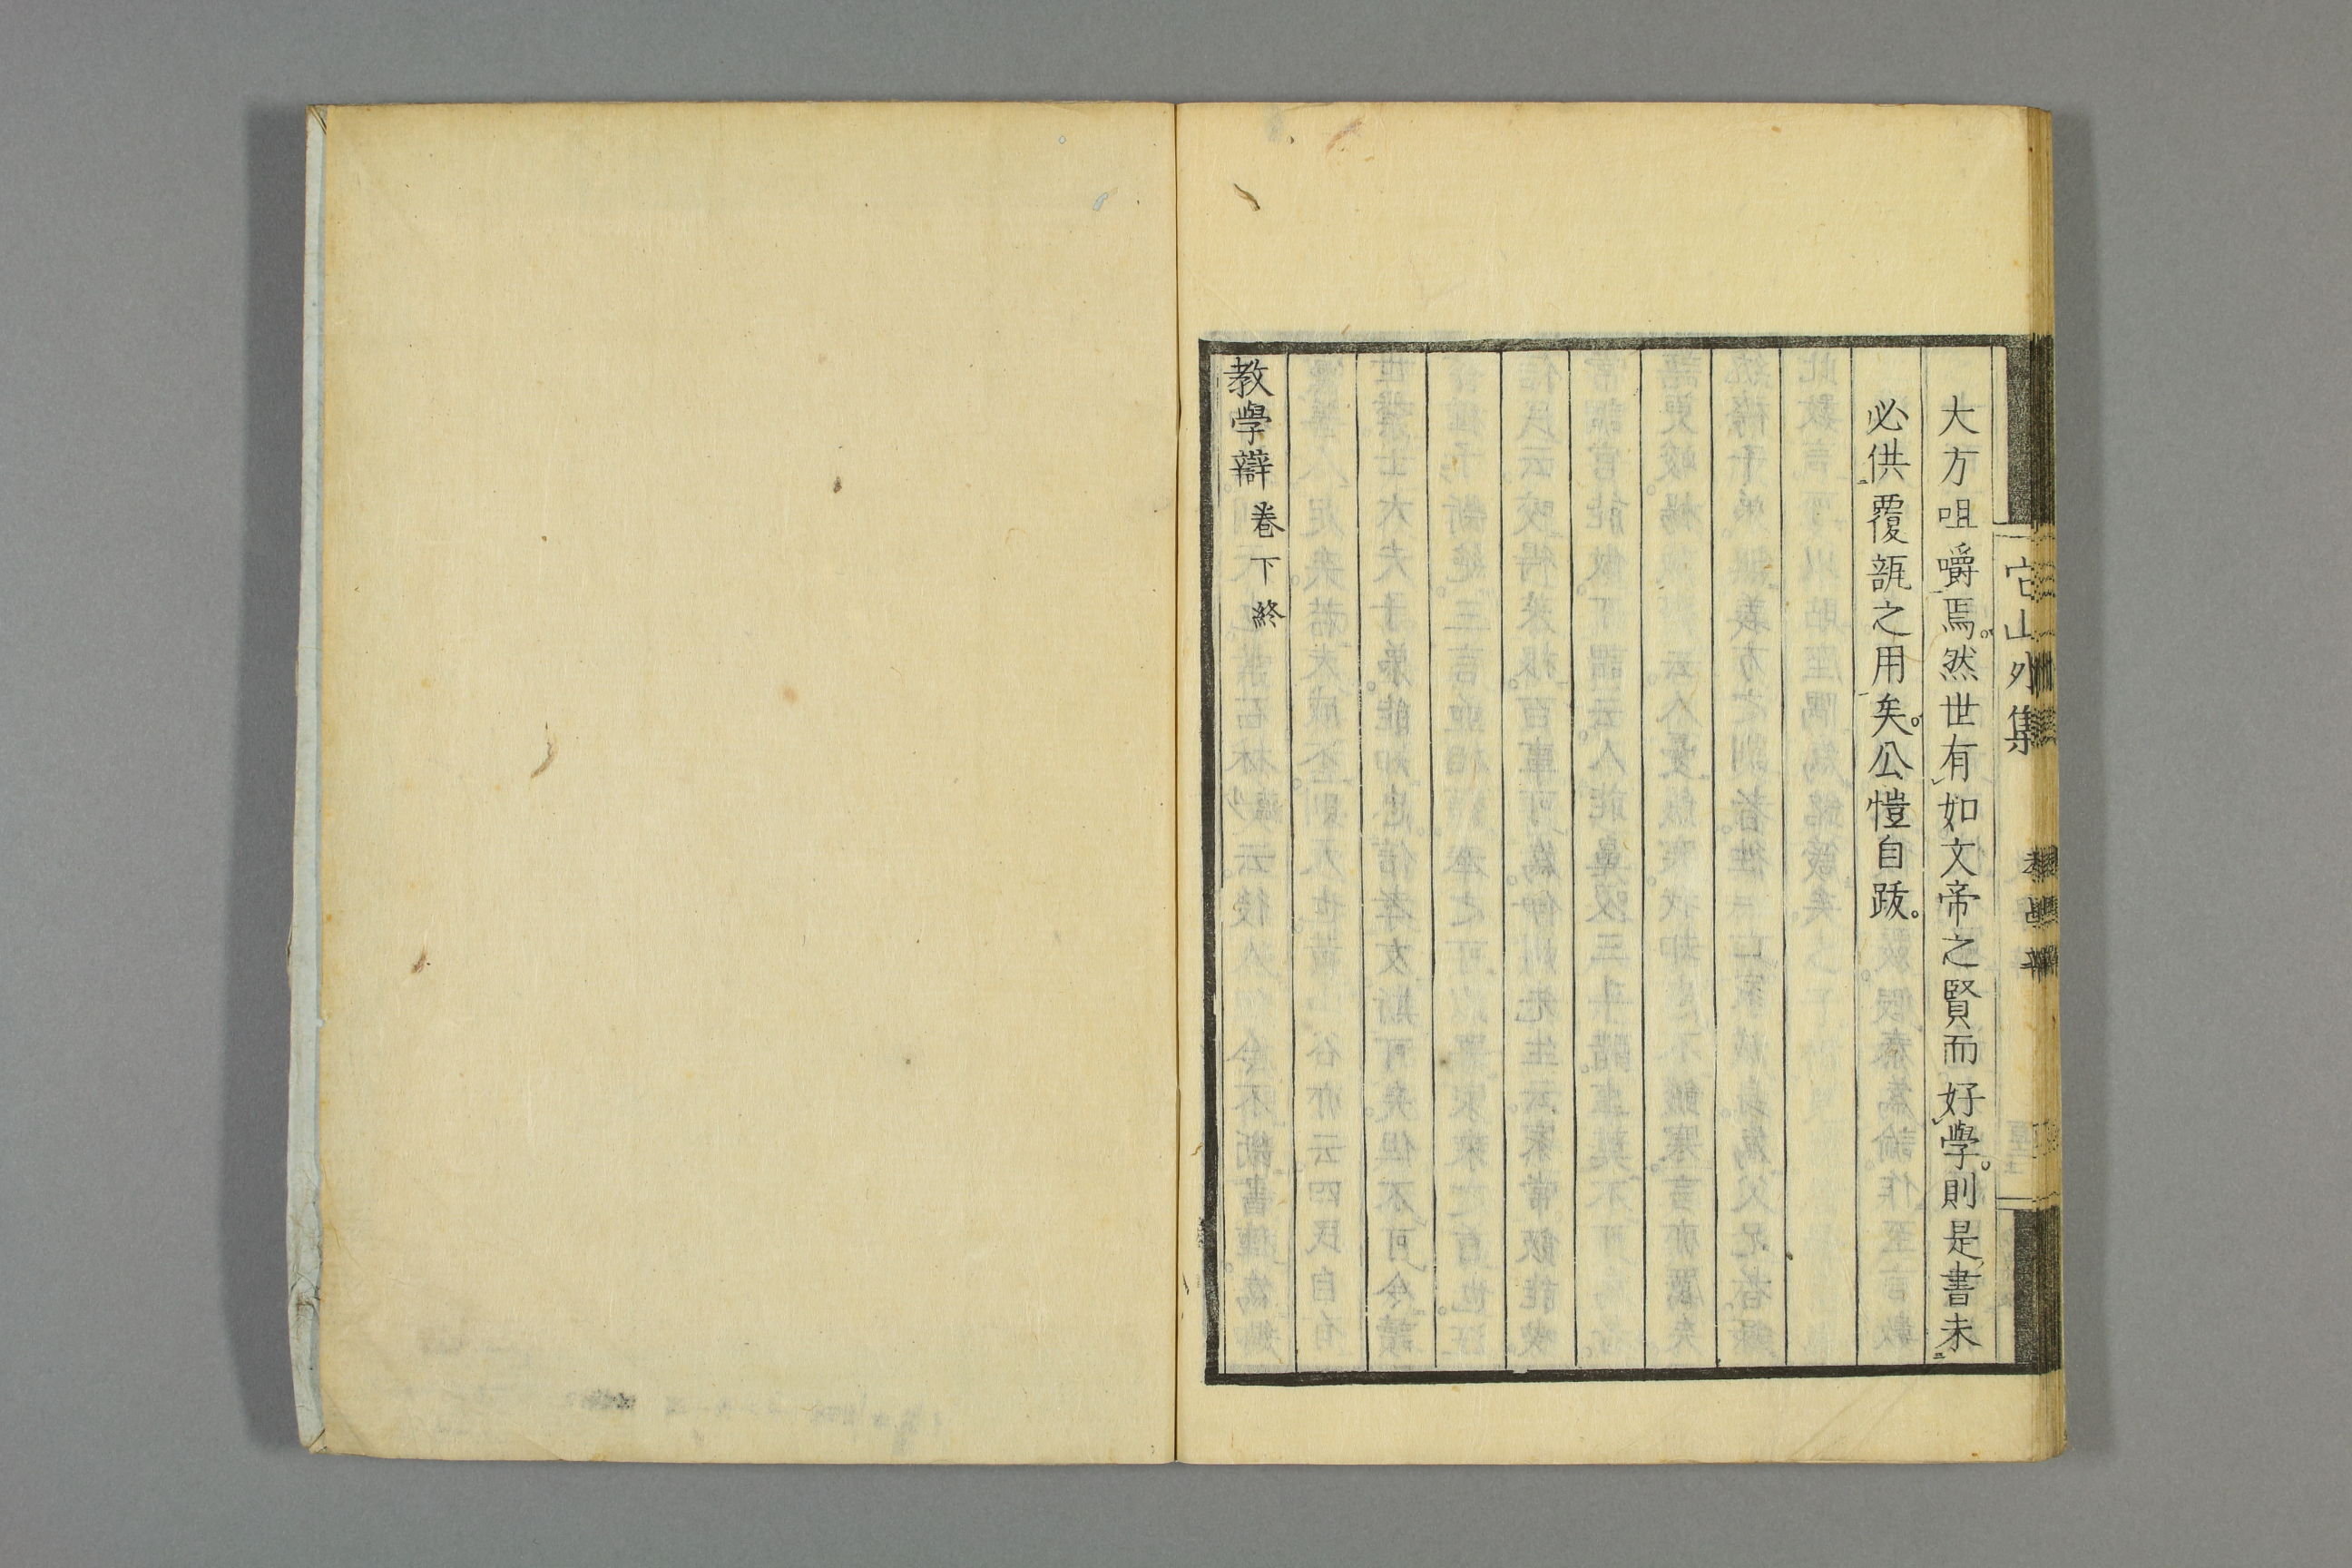 它山外集
大方咀嚼焉。然世有如文帝之賢而好學。則是書未
必供覆瓿之用矣。公愷自跋。
教學辯卷下終